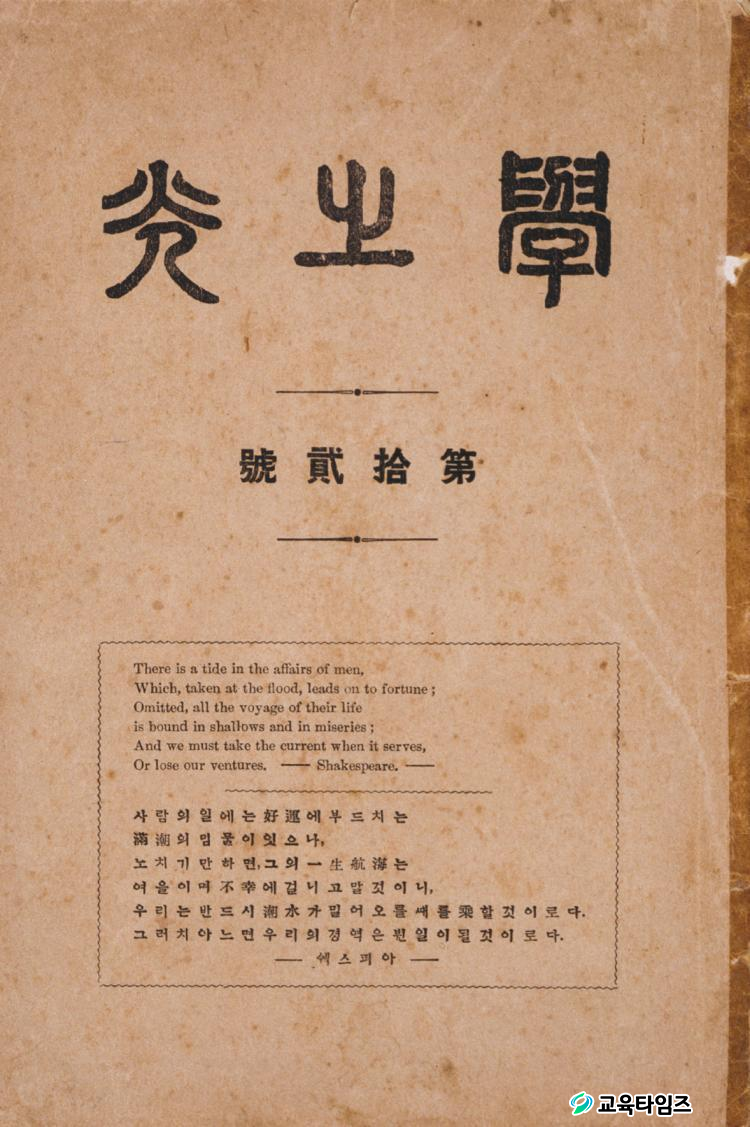 學之光
第拾貳號
There is a tide in the affairs of men,
Which, taken at the flood, leads on to fortune ;
Omitted, all the voyage of their life
is bound in shallows and in miseries ;
And we must take the current when it serves,
Or lose our ventures. —— Shakespeare. ——
사람의일에는好運에부드치는
滿潮의밀물이잇으나,
노치기만하면,그의一生航海는
여을이며不幸에걸니고말것이니,
우리는반드시潮水가밀어오를ᄯᅢ를乘할것이로다.
그러치아느면우리의경역은뷘일이될것이로다.
—— 쉑스피아 ——
교육타임즈